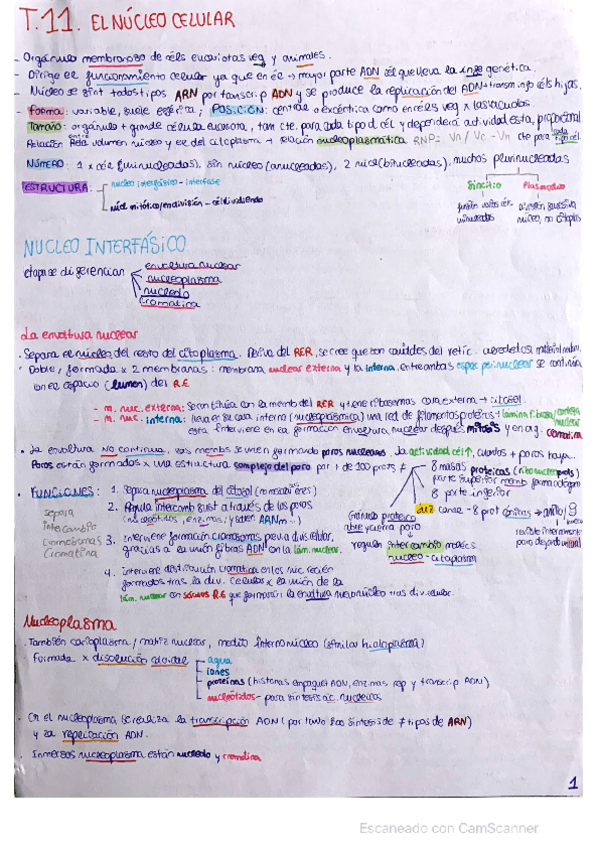 T.11. EL NÚCLEO CELULAR
- Orgánulo membranoso de céls eucariotas veg y animales.
- Dirige el funcionamiento celular ya que en él → mayor parte ADN el que lleva la info genética.
- Núcleo se sint todos tipos ARN por transcrip ADN y se produce la replicación del ADN → transm info céls hijas.
- Forma: variable, suele esférica; POSICIÓN: central o excéntrica como en céls veg x las vacuolas.
Tamaño: orgánulo + grande célula eucariota, tam cte. para cada tipo d cél y dependerá actividad esta, proporcional
Relación entre volumen núcleo y el del citoplasma → relación nucleoplasmática RNP = Vn / Vc - Vn cte para cada tipo cél.
NÚMERO: 1 x cél (uninucleadas), sin núcleo (anucleadas), 2 núcl (binucleadas), muchos plurinucleadas
Sincitio
Plasmodio
fusión varias cél. uninucleadas
división sucesiva núcleo, no citoplas
ESTRUCTURA:
núcleo interfásico - interfase
núcl mitótico/en división - cél dividiendo
NUCLEO INTERFÁSICO
etapa se diferencian
envoltura nuclear
nucleoplasma
nucleolo
cromatina
La envoltura nuclear
· Separa el núcleo del resto del citoplasma. Deriva del RER,
· Doble, formada x 2 membranas: membrana nuclear externa y la interna, entre ambas espac perinuclear se continúa
con el espacio (lumen) del R.E
- m. nuc. externa: se continúa con la memb del RER y tiene ribosomas con externa → citosol.
- m. nuc. interna: lleva en su cara interna (nucleoplásmica) una red de filamentos proteicos → lámina fibrosa/corteza nuclear
esta interviene en la formación envoltura nuclear después mitosis y en org. cromatina
· La envoltura No continua, las membs se unen formando poros nucleares. La actividad cél ↑, cuantos + poros haya.
Poros están formados x una estructura complejo del poro por + de 100 prots ≠
8 masas proteicas (ribonucleoprots)
parte superior
8 parte inferior
Gránulo proteico
abre y cierra poro
regula intercambio moléc núcleo - citoplasma
luz canal - 8 prot
· FUNCIONES:
separa
intercambio
cromosomas
cromatina
1. Separa nucleoplasma del citosol
2. Regula intercamb sust a través de los poros
(nucleótidos, enzimas, y salen ARNm ...)
3. Interviene formación cromosomas previa div celular,
gracias a la unión fibras ADN con la lám. nuclear.
4. Interviene distribución cromatina en los núc recién
formados tras la div. celular x la unión de la
lám. nuclear con sáculos R.E que formarán la envoltura nuevo núcleo tras div. celular.
Nucleoplasma
· También carioplasma / matriz nuclear, medio interno núcleo (similar hialoplasma)
Formada x disolución coloidal
agua
iones
proteínas (histonas empaquet ADN, enzimas rep y transcrip ADN)
nucleótidos - para síntesis ác. nucleicos
· En el nucleoplasma se realiza la transcripción ADN (por tanto las síntesis de ≠ tipos de ARN)
y la replicación ADN.
· Inmersos nucleoplasma están nucleolo y cromatina
1
Escaneado con CamScanner